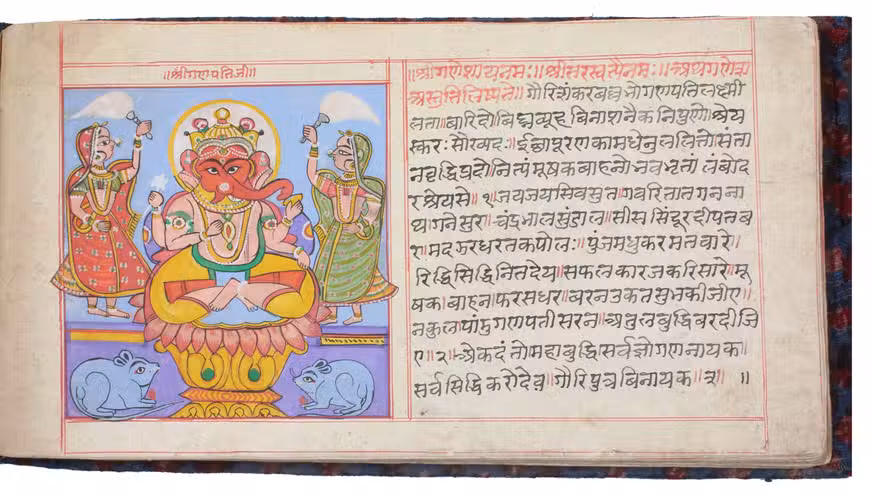 ॥श्रीगणपतिजी॥
॥श्रीगणेशायनमः॥श्रीसरस्वत्येनमः॥अथगणेश
अस्तुतिलिष्यते॥गौरिशंकरबल्लभोगणपतिलक्ष्मी
लता॥बारिदोबिघ्नव्यूहबिनाशनैकनिपुणो॥श्रेय
स्करःसौरवदः॥ईछापूरणकामधेनुललितोसंता
नबृद्धिप्रदोनित्यंमूषकबाहनोभवभृतां लंबोद
रश्रेयसे॥१॥जयजयसिवसुत॥गवरितातगनना
था॥गनेसुरा॥चंद्रभालसुंडाल॥सीससिंदूरदीपतब
रा॥मदऊरधरतकपोलः॥पुंजमधुकरमतवारे॥
रिद्धिसिद्धिनितदेय॥सफलकारजकरिसारे॥मू
षक॥बाहनाफरसधर॥बरनउकतसुभकीजीए॥
नकुलपांडुगणपतीसरन॥अबुलबुद्धिबरदीजि
ए॥२॥अेकदंतोमहाबुद्धिसर्वज्ञोगणनायक॥
सर्वसिद्धिकरोदेव॥गौरिपुत्रबिनायक॥३॥ ॥